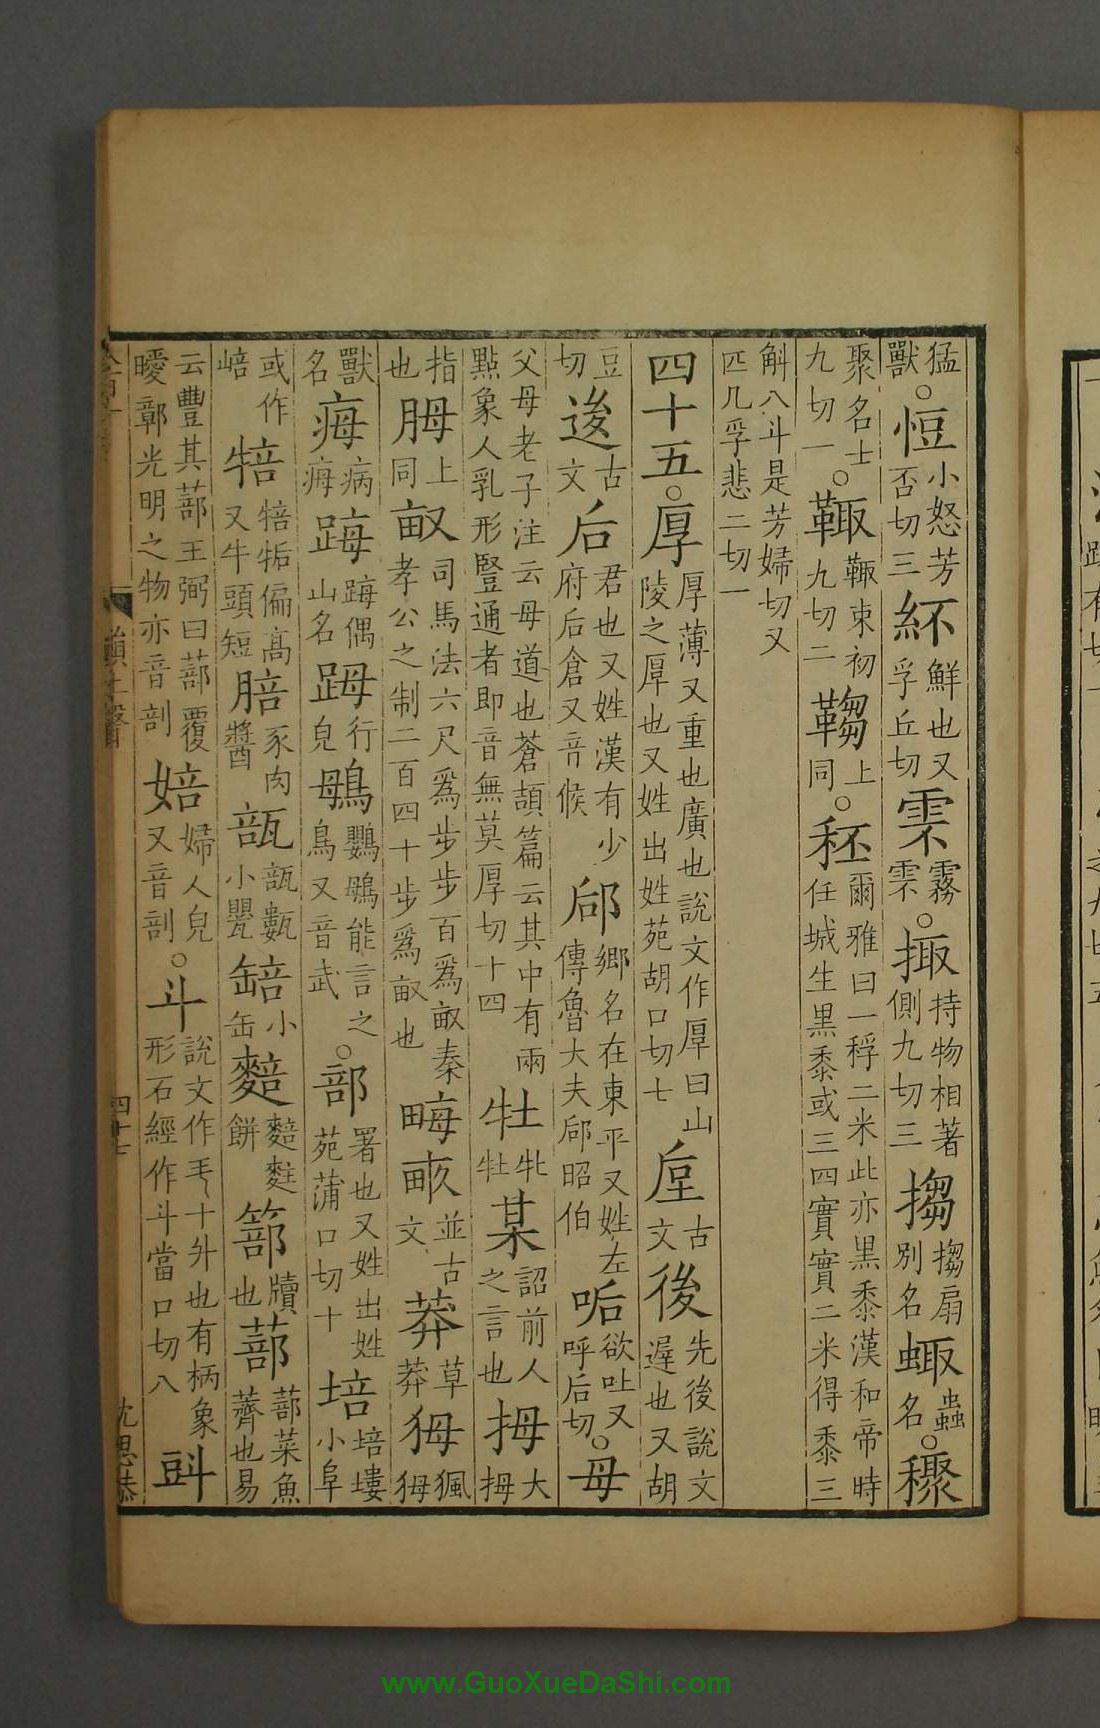 猛獸○恒小怒芳否切三紑鮮也又孚丘切䨓霧䨓○掫持物相著側九切三㨨㨨扇別名䖣蟲名○穝
聚名士九切一○鞦鞦束初九切二鞦上同○秠爾雅曰一稃二米此亦黑黍漢和帝時任城生黑黍或三四實實二米得黍三
斛八斗是芳婦切又匹几孚悲二切一
四十五○厚厚薄又重也廣也說文作厚曰山陵之厚也又姓出姓苑胡口切七垕古文後先後說文遲也又胡
豆切逡古文后君也又姓漢有少府后倉又音候郈鄉名在東平又姓左傳魯大夫郈昭伯㖃欲吐又呼后切○母
父母老子注云母道也蒼頡篇云其中有兩點象人乳形豎通者即音無莫厚切十四牡牝牡某詔前人之言也拇大拇
指也胟上同畝司馬法六尺爲步步百爲畝秦孝公之制二百四十步爲畝也畮畞並古文莽草莽𤝕猦𤝕
獸名痗病痗踇踇偶山名䟨行皃鴟鸚䳇能言之鳥又音武○部署也又姓出姓苑蒲口切十培培塿小阜
或作㟝犃犃㸸偏高又牛頭短䏽豕肉醬瓿瓿甊小甖䍌小缶䴺䴺䴴餅篰牘也蔀蔀菜魚薺也易
云豐其蔀王弼曰蔀覆曖鄣光明之物亦音剖婄婦人皃又音剖○斗說文作㪷十升也有柄象形石經作斗當口切八㪷
四十七
沈思恭
www.GuoXueDaShi.com